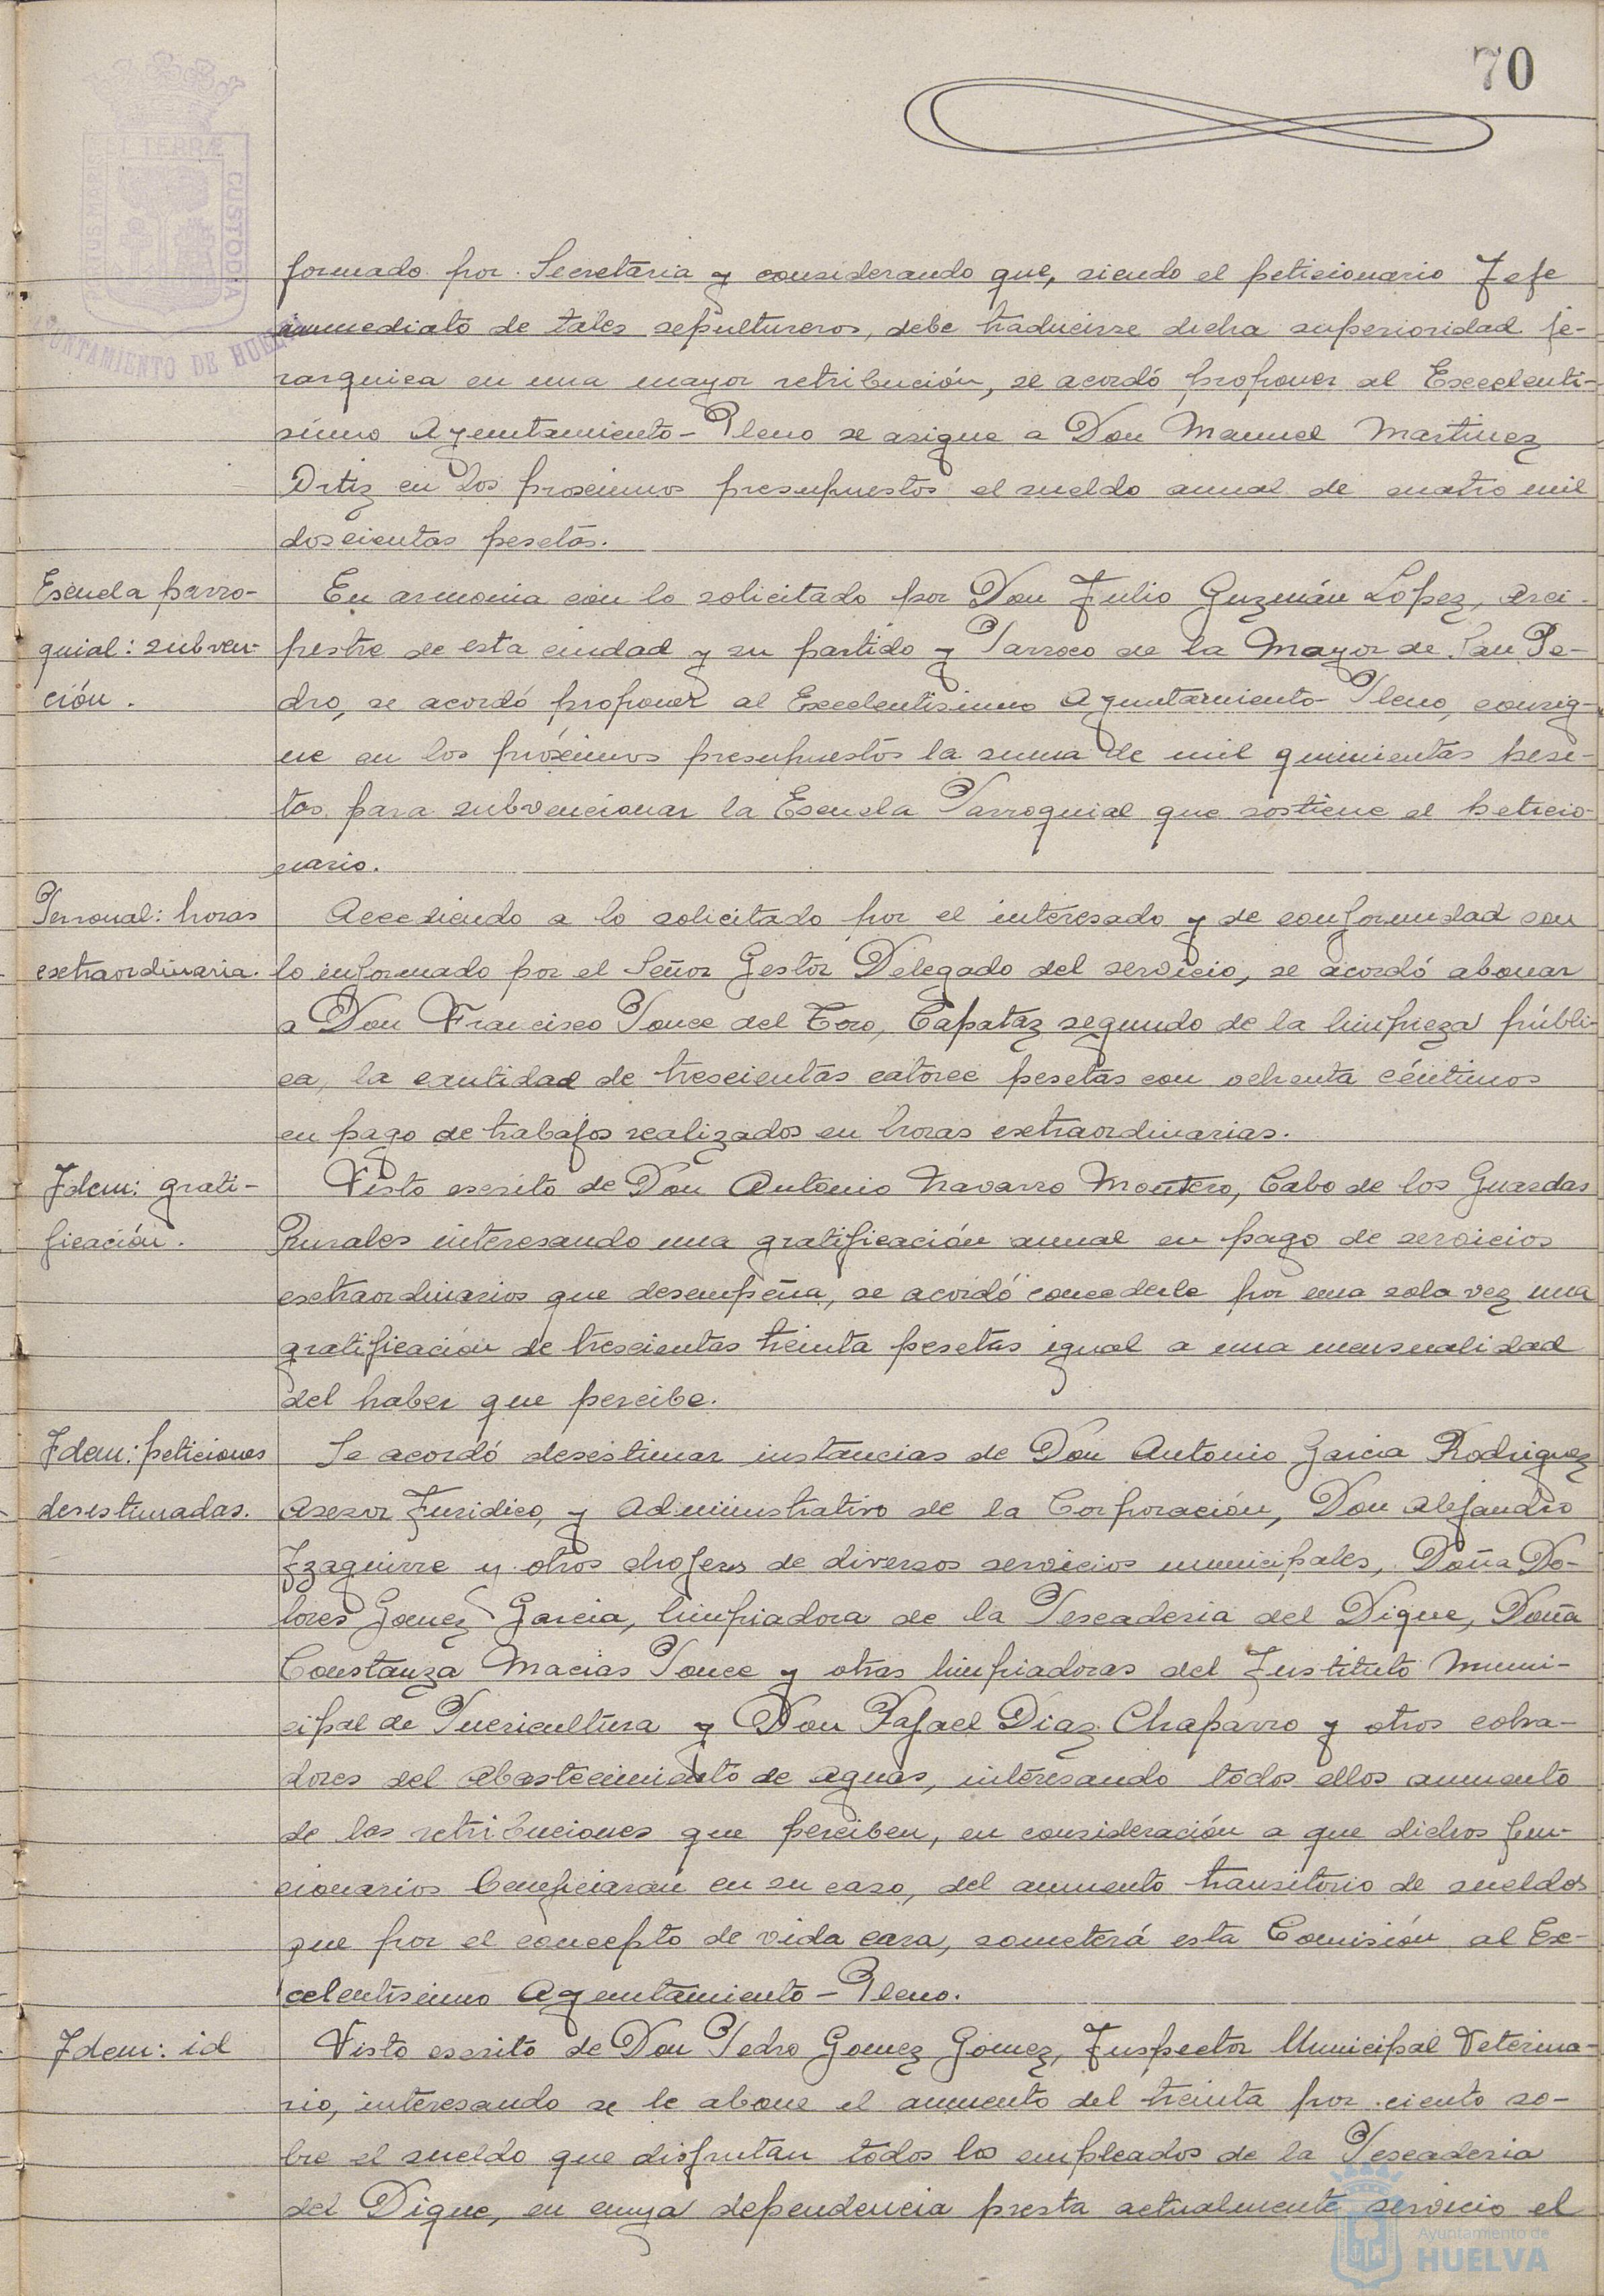 70
PORTUS MARIS ET TERRÆ CUSTODIA
AYUNTAMIENTO DE HUELVA
formado por Secretaria y considerando que, siendo el peticionario Jefe
inmediato de tales sepultureros, debe traducirse dicha superioridad je-
rarquica en una mayor retribución, se acordó proponer al Excelenti-
simo Ayuntamiento-Pleno se asigne a Don Manuel Martinez
Ortiz en los proximos presupuestos el sueldo anual de cuatro mil
doscientas pesetas.
Escuela parro-
quial: subven-
ción.
En armonia con lo solicitado por Don Julio Guzmán López, Arci-
preste de esta ciudad y su partido y Parroco de la Mayor de San Pe-
dro, se acordó proponer al Excelentisimo Ayuntamiento-Pleno, consig-
ne en los próximos presupuestos la suma de mil quinientas pese-
tas para subvencionar la Escuela Parroquial que sostiene el peticio-
nario.
Personal: horas
extraordinaria.
Accediendo a lo solicitado por el interesado y de conformidad con
lo informado por el Señor Gestor Delegado del servicio, se acordó abonar
a Don Francisco Ponce del Toro, Capataz segundo de la limpieza públi-
ca, la cantidad de trescientas catorce pesetas con ochenta céntimos
en pago de trabajos realizados en horas extraordinarias.
Idem: grati-
ficación.
Visto escrito de Don Antonio Navarro Montero, Cabo de los Guardas
Rurales interesando una gratificación anual en pago de servicios
extraordinarios que desempeña, se acordó concederle por una sola vez una
gratificación de trescientas treinta pesetas igual a una mensualidad
del haber que percibe.
Idem: peticiones
desestimadas.
Se acordó desestimar instancias de Don Antonio Garcia Rodriguez
Asesor Juridico, y Administrativo de la Corporación, Don Alejandro
Izaguirre y otros chofers de diversos servicios municipales, Doña Do-
lores Gomez Garcia, limpiadora de la Pescaderia del Dique, Doña
Constanza Macias Ponce y otras limpiadoras del Instituto Muni-
cipal de Puericultura y Don Rafael Diaz Chaparro y otros cobra-
dores del Abastecimiento de aguas, interesando todos ellos aumento
de las retribuciones que perciben, en consideración a que dichos fun-
cionarios beneficiarán en su caso, del aumento transitorio de sueldos
que por el concepto de vida cara, someterá esta Comisión al Ex-
celentisimo Ayuntamiento-Pleno.
Idem: id
Visto escrito de Don Pedro Gomez Gómez, Inspector Municipal Veterina-
rio, interesando se le abone el aumento del treinta por ciento so-
bre el sueldo que disfrutan todos los empleados de la Pescaderia
del Dique, en cuya dependencia presta actualmente servicio el
Ayuntamiento de
HUELVA